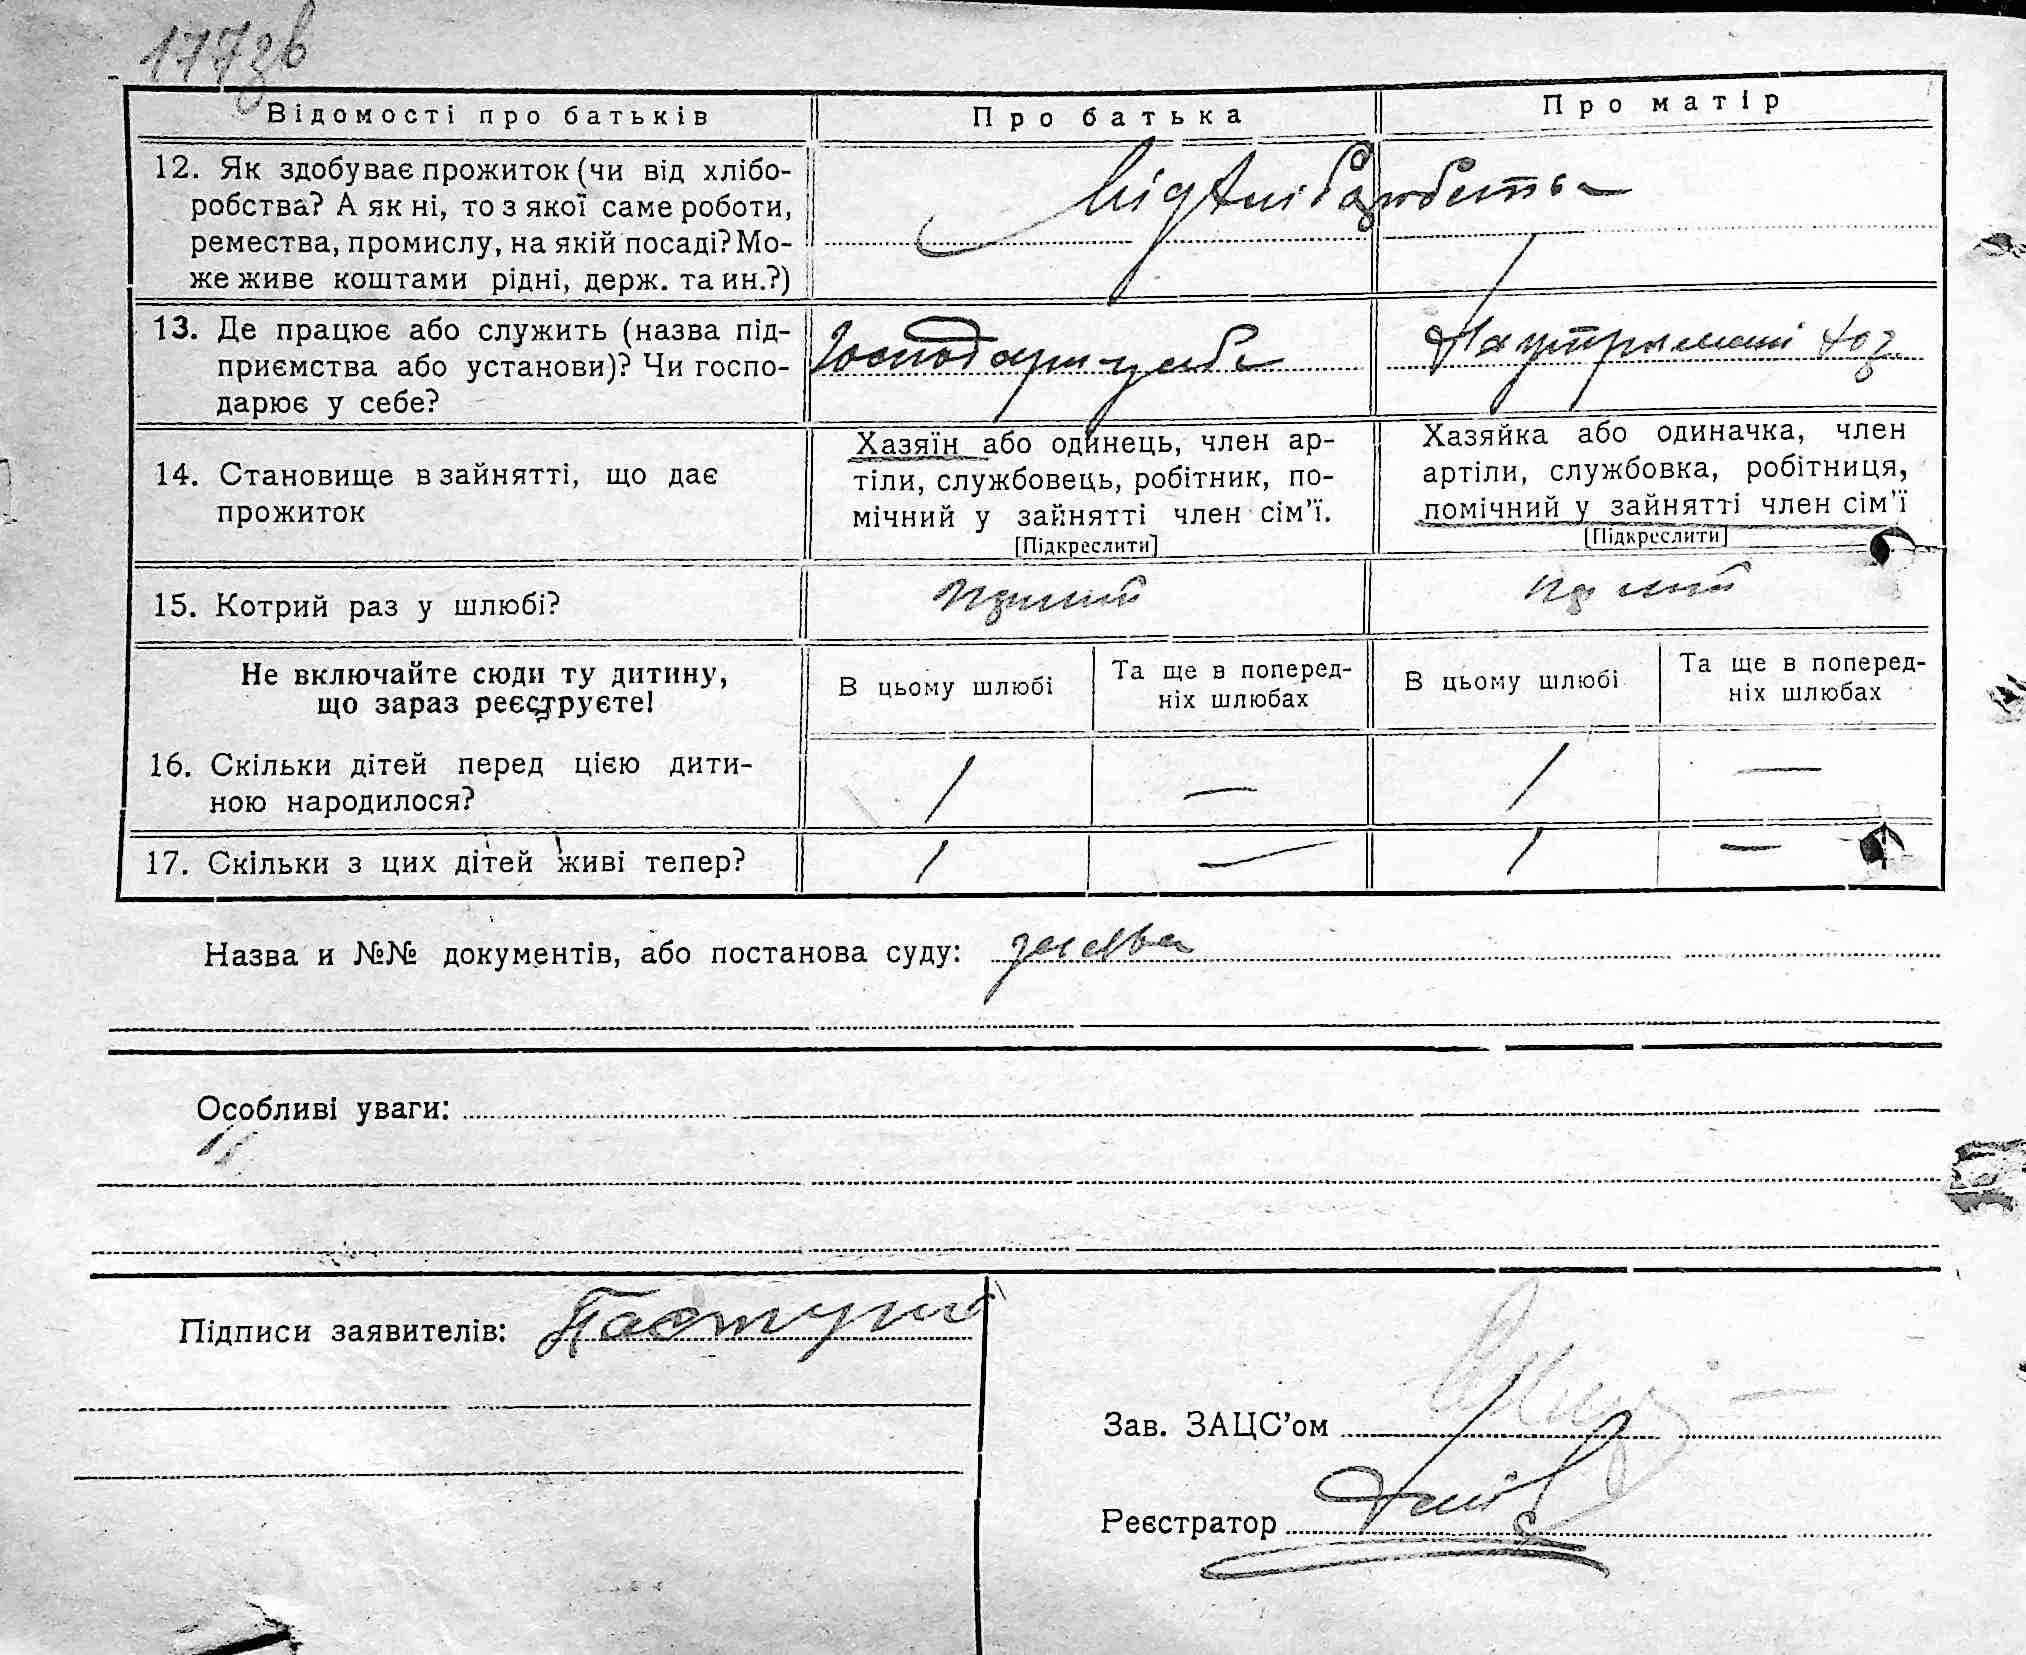 177зв
Відомості про батьків
Про батька
Про матір
12. Як здобуває прожиток (чи від хлібо-
робства? А як ні, то з якої саме роботи,
ремества, промислу, на якій посаді? Мо-
же живе коштами рідні, держ. та ин.?)
Від
13. Де працює або служить (назва під-
приємства або установи)? Чи госпо-
дарює у себе?
Господарі у себе
На утриманні
14. Становище в зайнятті, що дає
прожиток
Хазяїн або одинець, член ар-
тіли, службовець, робітник, по-
мічний у зайнятті член сім'ї.
[Підкреслити]
Хазяйка або одиначка, член
артіли, службовка, робітниця,
помічний у зайнятті член сім'ї
[Підкреслити]
15. Котрий раз у шлюбі?
Не включайте сюди ту дитину,
що зараз реєструєте!
В цьому шлюбі
Та ще в поперед-
ніх шлюбах
В цьому шлюбі
Та ще в поперед-
ніх шлюбах
16. Скільки дітей перед цією дити-
ною народилося?
1 — 1 —
17. Скільки з цих дітей живі тепер?
1 — 1 —
Назва и №№ документів, або постанова суду: заява
Особливі уваги:
Підписи заявителів: Пастуш
Зав. ЗАЦС'ом
Реєстратор